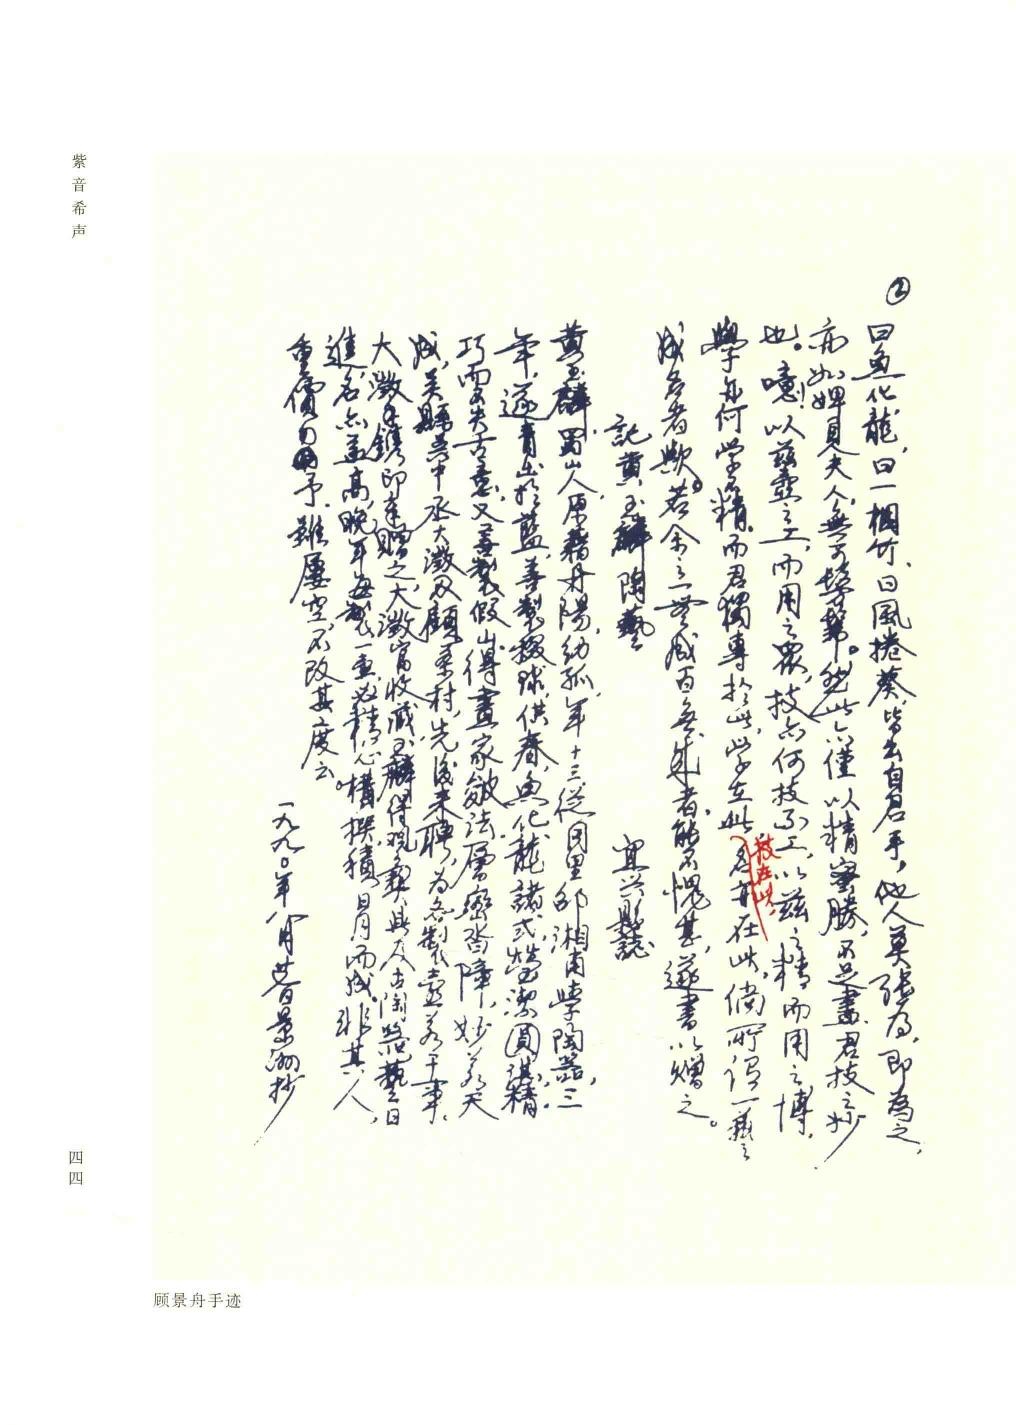 紫音希声
②
曰魚化龍，曰一捆竹，曰風捲葵，皆出自君手，他人莫能為，即為之，
亦如婢見夫人，無可擬其萬一。然此亦僅以精密勝，不足盡君技之妙
也。噫！以茲壺之工，而用之眾，技亦何技不工，以茲之精而用之博，
學亦何學不精。而君獨專於此，学在此技在此，名亦在此，倘所謂一藝之
成名者歟。若余之一無成百無就者，能不愧甚，遂書以贈之。
記黃玉麟陶藝 宜兴縣誌
黃玉麟，蜀山人，原籍丹陽，幼孤，年十三，從同里邵湘甫學陶器，三
年，遂青出於藍，善製掇球，供春，魚化龍諸式，瑩潔圓湛，精
巧而不失古意，又善製假山，得畫家皴法，層巒叠障，妙若天
成，吳縣吳中丞大澂及顧茶村，先後來聘，为各製壺若干事，
大澂手鐫印章贈之，大澂富收藏，玉麟得觀彝鼎及古陶器，藝日
進，名亦益高，晚年每製一壺，必精心構撰，積日月而成，非其人，
重價勿予，雖屢空，不改其度云。
一九九〇年八月 景洲抄
四四
顾景舟手迹